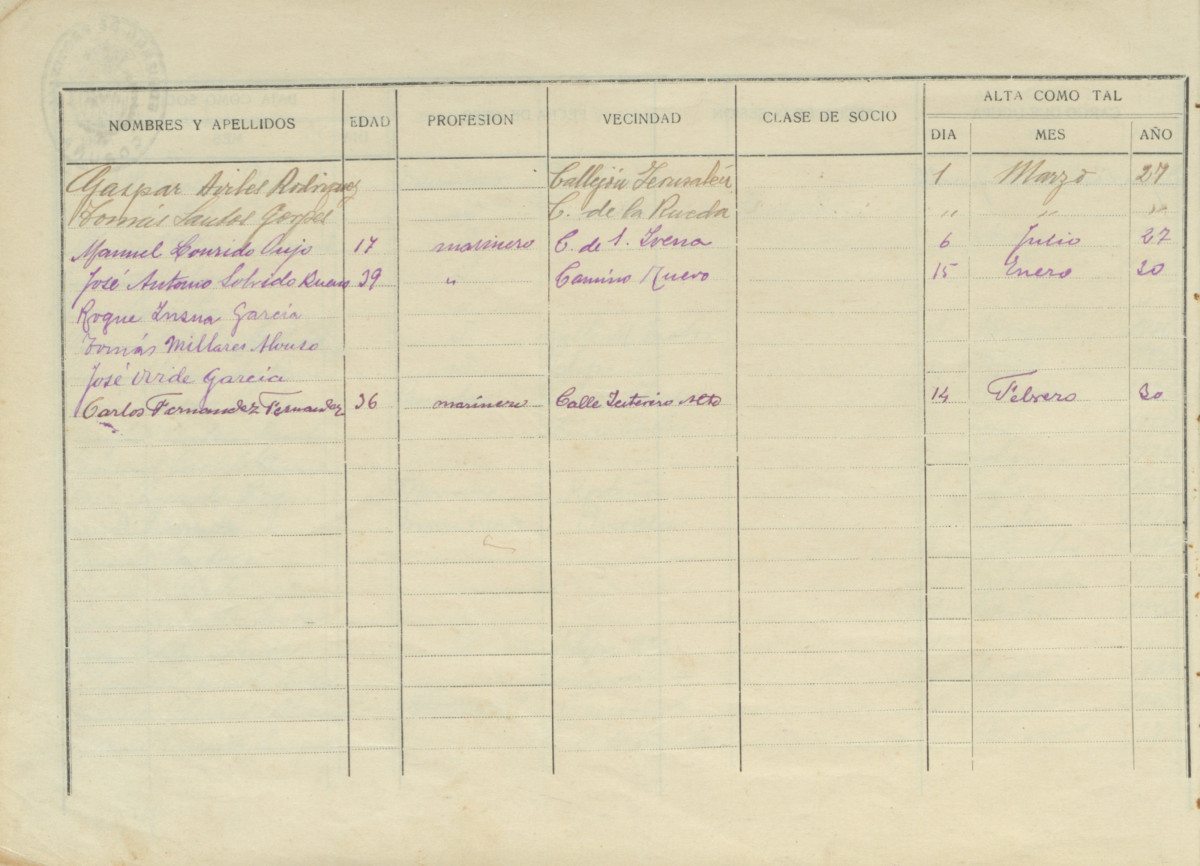 NOMBRES Y APELLIDOS EDAD PROFESION VECINDAD CLASE DE SOCIO ALTA COMO TAL
DIA MES AÑO
Gaspar Rodriguez Callejón Jerusalén 1 Marzo 27
Tomás Santos C. de la Rueda " " "
Manuel Lourido 17 marinero C. de 6 Julio 27
José Antonio 39 " Camino Nuevo 15 Enero 30
Roque Insua García
Tomás Millares Alonso
José Verde García
Carlos Fernandez Fernandez 36 marinero Calle Alto 14 Febrero 30